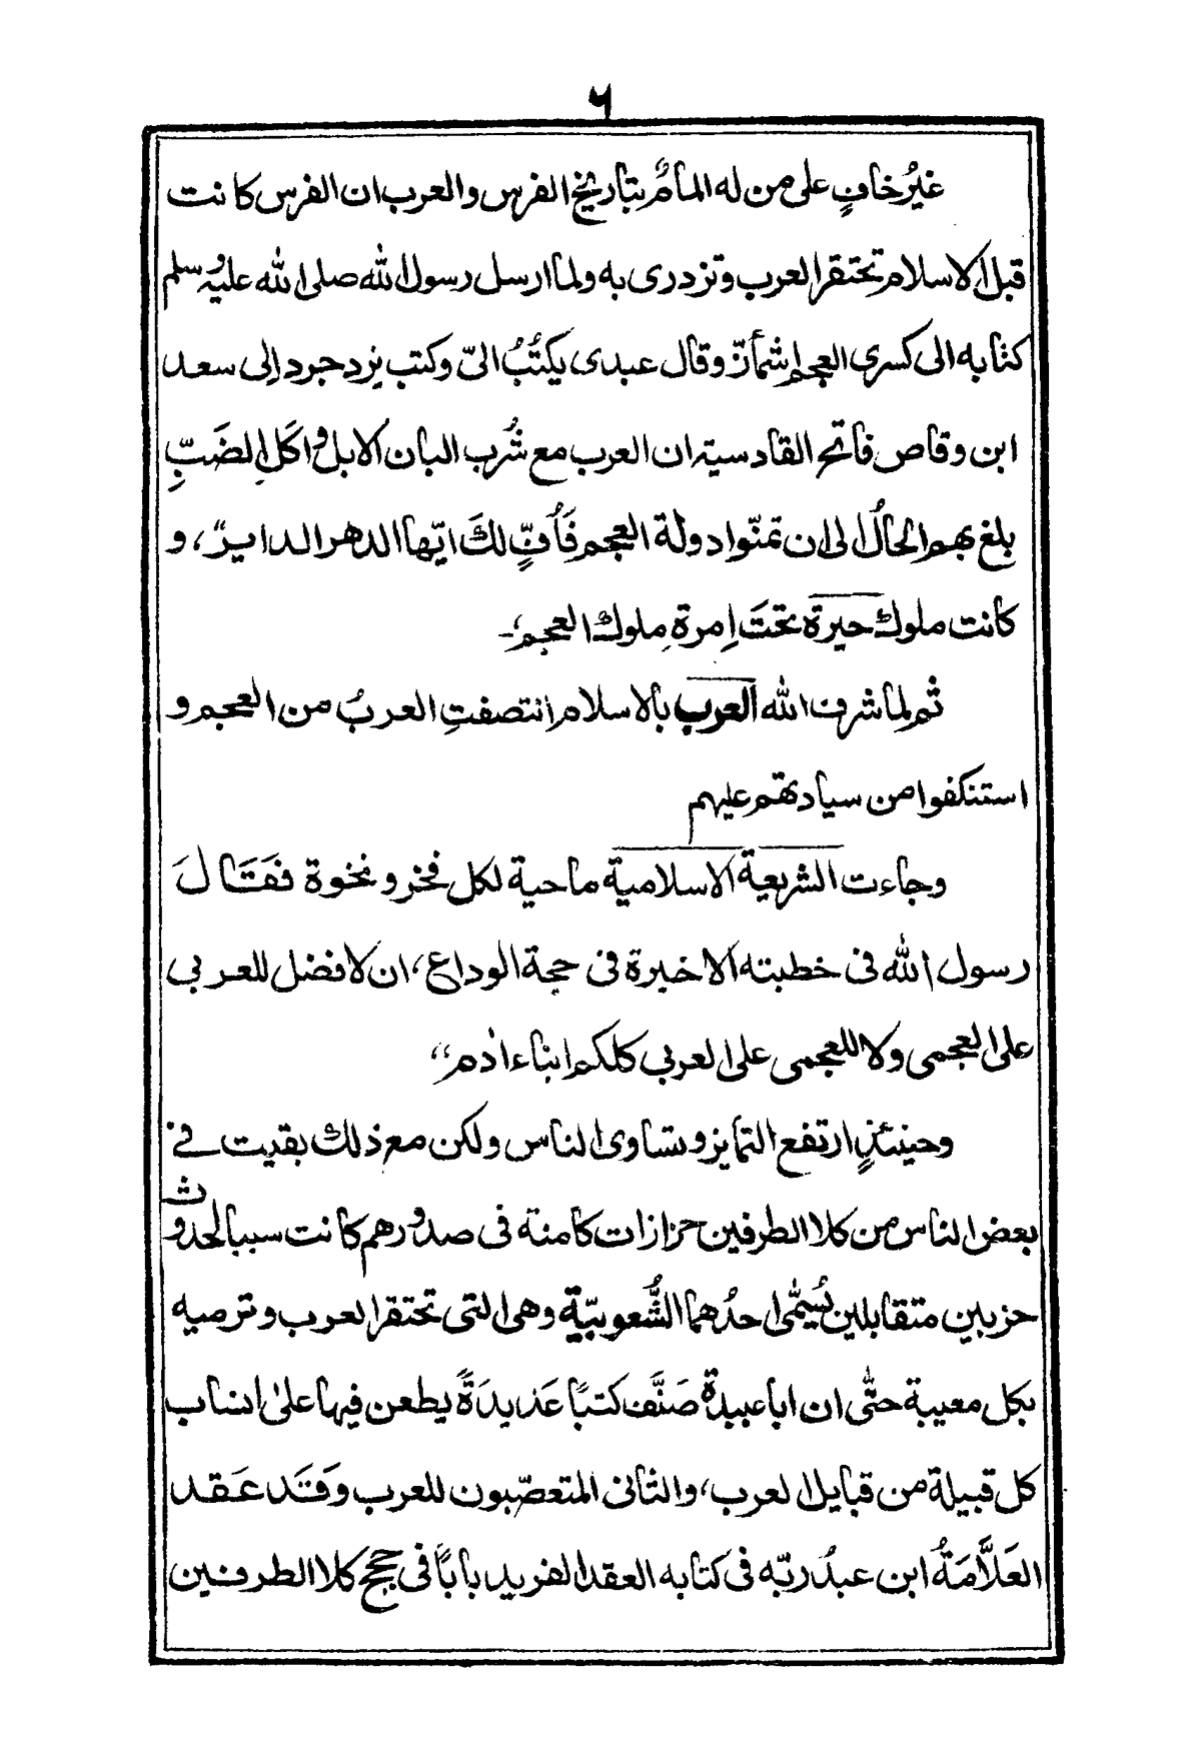 ۶
غيرُ خافٍ على من له المامٌ بتاريخ الفرس والعرب ان الفرس كانت
قبل الاسلام تحتقر العرب وتزدرى به ولما ارسل رسول الله صلى الله عليه وسلم
كتابه الى كسرى العجم اشمأنّ وقال عبدى يكتُبُ الىّ وكتب يزدجرد إلى سعد
ابن وقاص فاتح القادسية ان العرب مع شُرب البان الابل واكل الضَبِّ
بلغ بهم الحالُ الى ان تمنّوا دولة العجم فَأُفٍّ لكَ ايّها الدهر الداير"، و
كانت ملوك حيرة تحتَ اِمرة ملوك العجم،-
ثم لما شرف الله العرب بالاسلام انتصفتِ العربُ من العجم و
استنكفوا من سيادتهم عليهم
وجاءت الشريعة الاسلامية ماحية لكل فخر و نخوة فَقَالَ
رسول الله فى خطبته الاخيرة فى حجة الوداع، ان لا فضل للعربى
على العجمى ولا للعجمى على العربى كلكم ابناء اٰدم"
وحينئذٍ ارتفع التمايز وتساوى الناس ولكن مع ذلك بقيت فى
بعض الناس من كلا الطرفين حزازات كامنة فى صدورهم كانت سببا لحدوث
حزبين متقابلين يُسمّٰى احدُهما الشُّعوبيّة وهى التى تحتقر العرب وترميه
بكل معيبة حتّٰى ان ابا عبيدة صَنَّف كتبًا عَديدَةً يطعن فيها علىٰ انساب
كل قبيلة من قبايل العرب، والثانى المتعصّبون للعرب وَقَد عَقد
العَلاَّمَةُ ابن عبدُ ربّه فى كتابه العقد الفريد باباً فى حجج كلا الطرفين